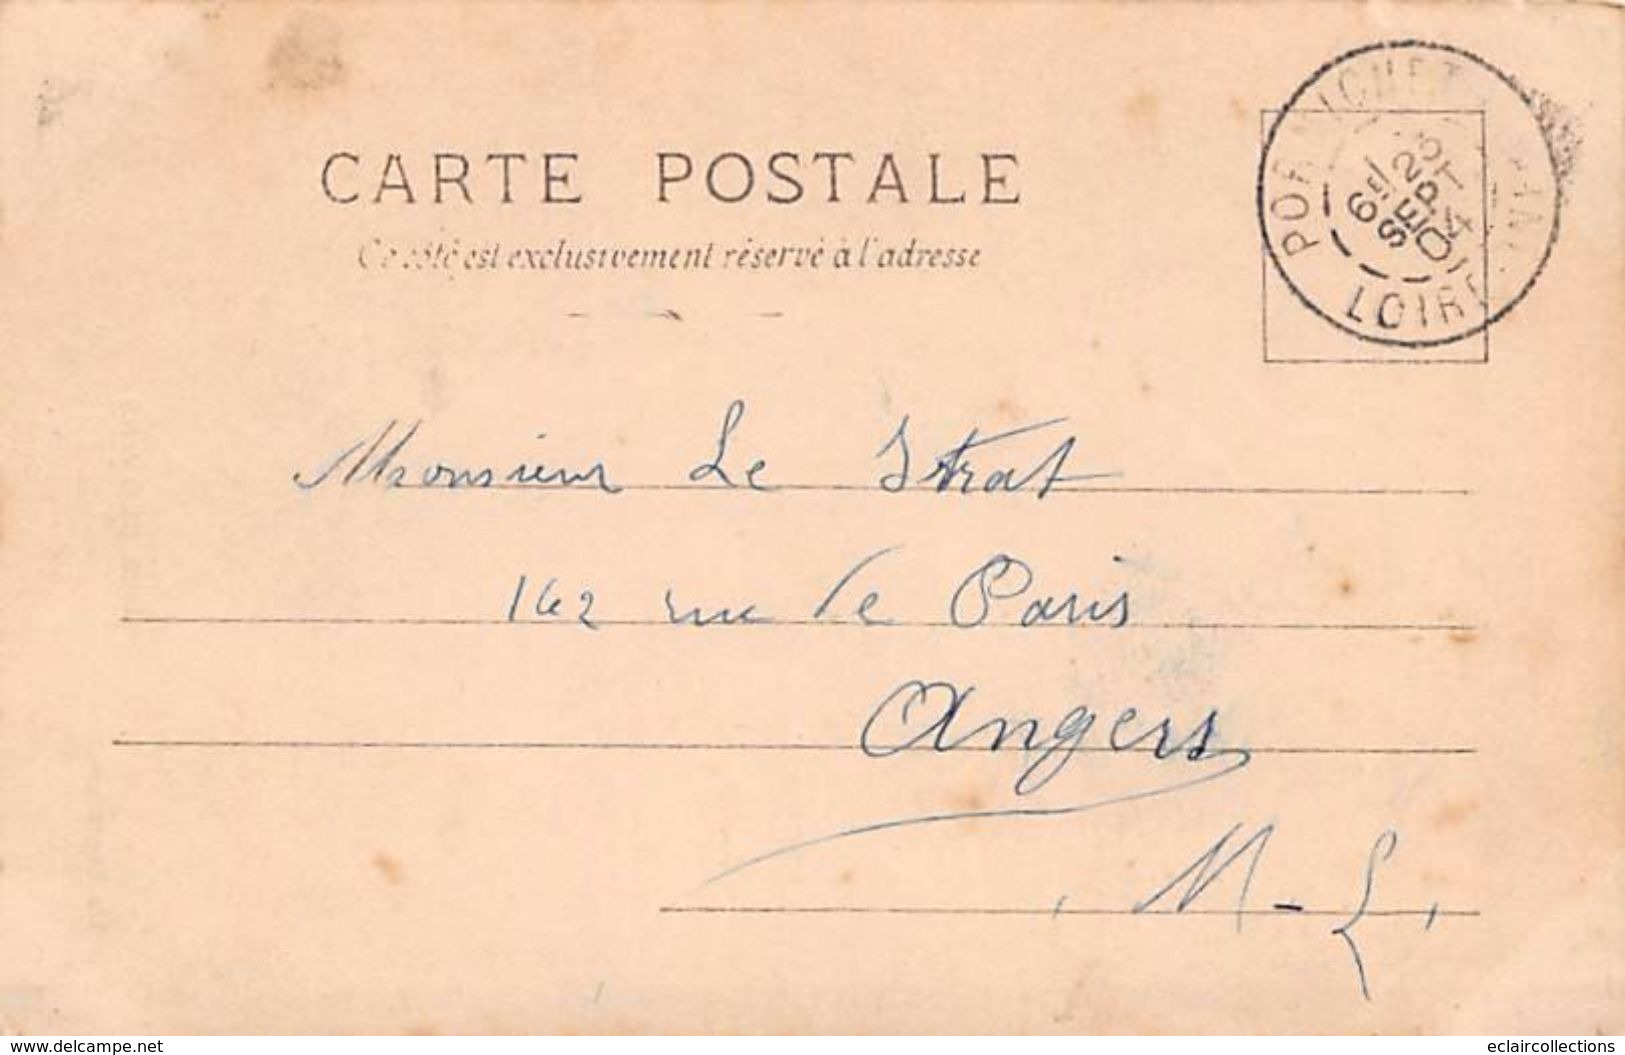 CARTE POSTALE
Ce côté est exclusivement réservé à l'adresse
PORNICHET
6E / 25
SEPT
04
LOIRE INF
Monsieur Le Strat
162 rue de Paris
Angers
M-L
www.delcampe.net
eclaircollections